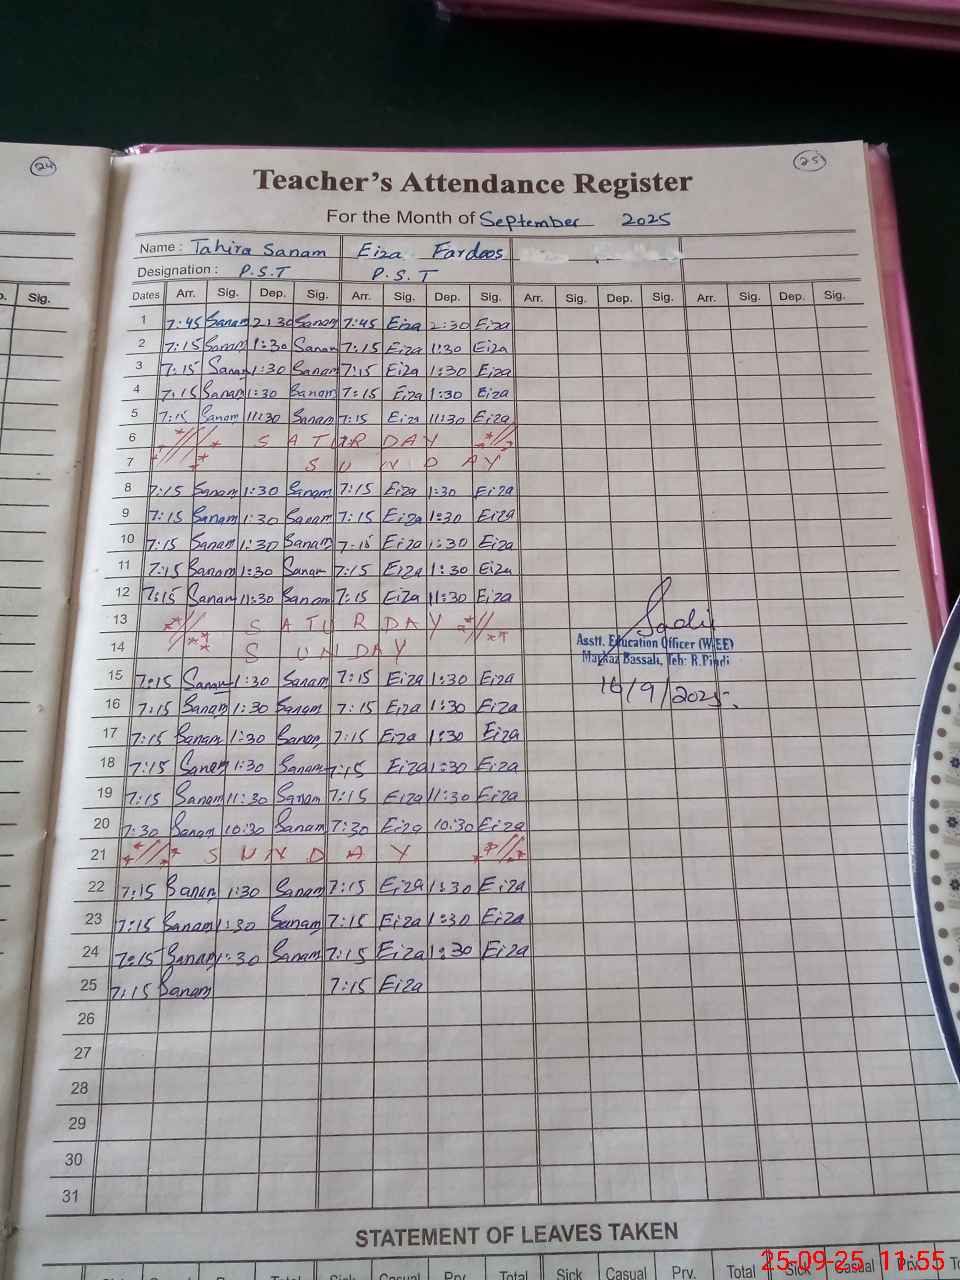 24
25
Teacher's Attendance Register
For the Month of September 2025
Name : Tahira Sanam Eiza Fardoos
Designation : P.S.T P.S.T
Sig.
Dates Arr. Sig. Dep. Sig. Arr. Sig. Dep. Sig. Arr. Sig. Dep. Sig. Arr. Sig. Dep. Sig.
1 7:45 Sanam 2:30 Sanam 7:45 Eiza 2:30 Eiza
2 7:15 Sanam 1:30 Sanam 7:15 Eiza 1:30 Eiza
3 7:15 Sanam 1:30 Sanam 7:15 Eiza 1:30 Eiza
4 7:15 Sanam 1:30 Sanam 7:15 Eiza 1:30 Eiza
5 7:15 Sanam 11:30 Sanam 7:15 Eiza 11:30 Eiza
6 SATURDAY
7 SUNDAY
8 7:15 Sanam 1:30 Sanam 7:15 Eiza 1:30 Eiza
9 7:15 Sanam 1:30 Sanam 7:15 Eiza 1:30 Eiza
10 7:15 Sanam 1:30 Sanam 7:15 Eiza 1:30 Eiza
11 7:15 Sanam 1:30 Sanam 7:15 Eiza 1:30 Eiza
12 7:15 Sanam 11:30 Sanam 7:15 Eiza 11:30 Eiza
13 SATURDAY
14 SUNDAY
Asstt. Education Officer (W-EE)
Markaz Bassali, Teh: R.Pindi
16/9/2025.
15 7:15 Sanam 1:30 Sanam 7:15 Eiza 1:30 Eiza
16 7:15 Sanam 1:30 Sanam 7:15 Eiza 1:30 Eiza
17 7:15 Sanam 1:30 Sanam 7:15 Eiza 1:30 Eiza
18 7:15 Sanam 1:30 Sanam 7:15 Eiza 1:30 Eiza
19 7:15 Sanam 11:30 Sanam 7:15 Eiza 11:30 Eiza
20 7:30 Sanam 10:30 Sanam 7:30 Eiza 10:30 Eiza
21 SUNDAY
22 7:15 Sanam 1:30 Sanam 7:15 Eiza 1:30 Eiza
23 7:15 Sanam 1:30 Sanam 7:15 Eiza 1:30 Eiza
24 7:15 Sanam 1:30 Sanam 7:15 Eiza 1:30 Eiza
25 7:15 Sanam 7:15 Eiza
26
27
28
29
30
31
STATEMENT OF LEAVES TAKEN
Sick Casual Prv. Total Sick Casual Prv. Total Sick Casual Prv.
25-09-25 11:55